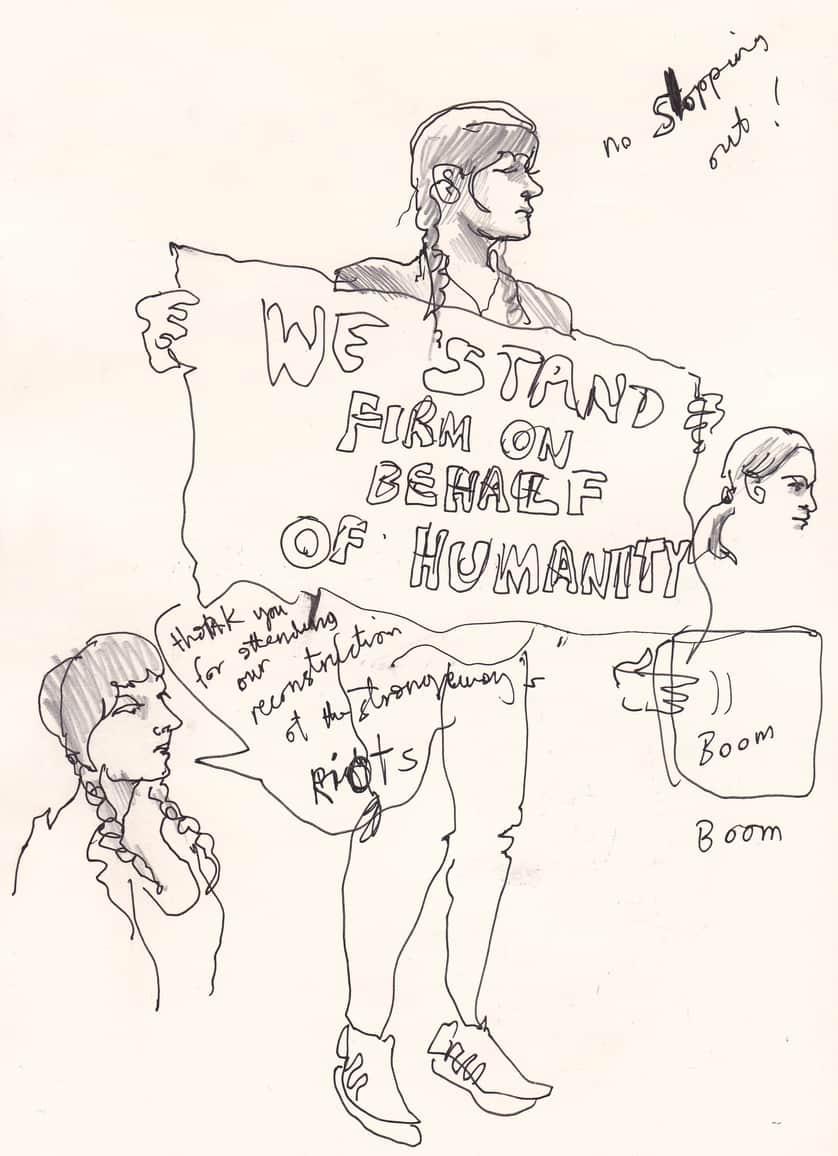 no Slopping
out!
WE STAND
FIRM ON
BEHALF
OF HUMANITY
thank you
for attending
our
reconstruction
of the strangeways
Riots
Boom
Boom